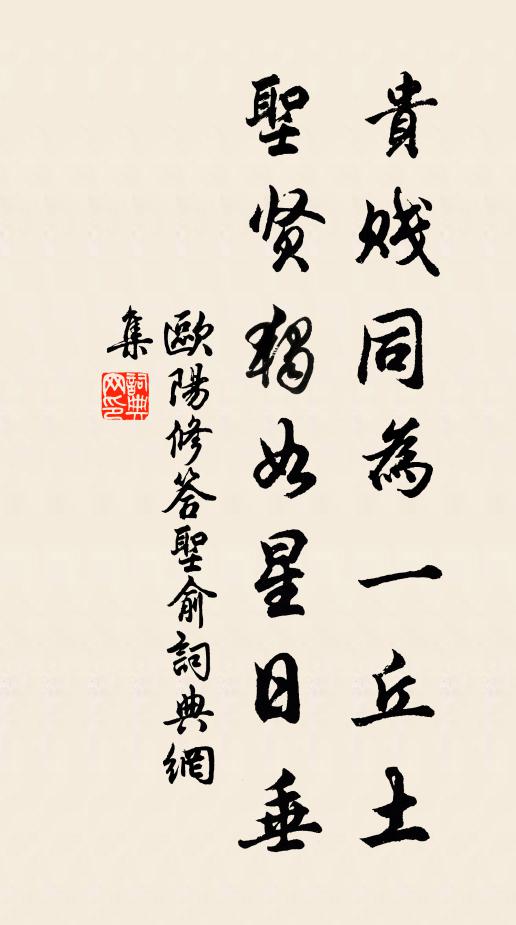 貴賤同為一丘土
聖贤獨如星日垂
歐陽修答聖俞詞典網
集
詞典網印